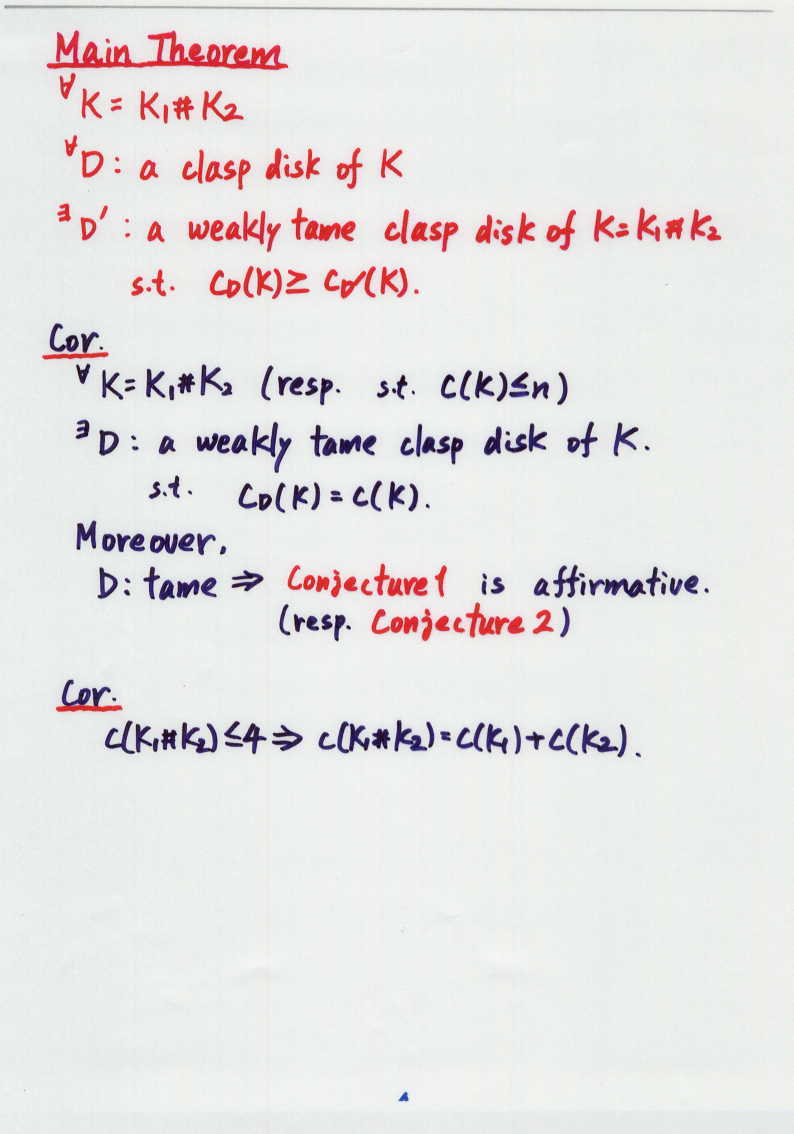 Main Theorem
∀K = K₁#K₂
∀D : a clasp disk of K
∃D′ : a weakly tame clasp disk of K=K₁#K₂
s.t. C_D(K) ≥ C_D′(K).
Cor.
∀K=K₁#K₂ (resp. s.t. C(K)≤n)
∃D : a weakly tame clasp disk of K.
s.t. C_D(K) = C(K).
Moreover,
D: tame ⇒ Conjecture 1 is affirmative.
(resp. Conjecture 2)
Cor.
C(K₁#K₂) ≤4 ⇒ C(K₁#K₂)=C(K₁)+C(K₂).